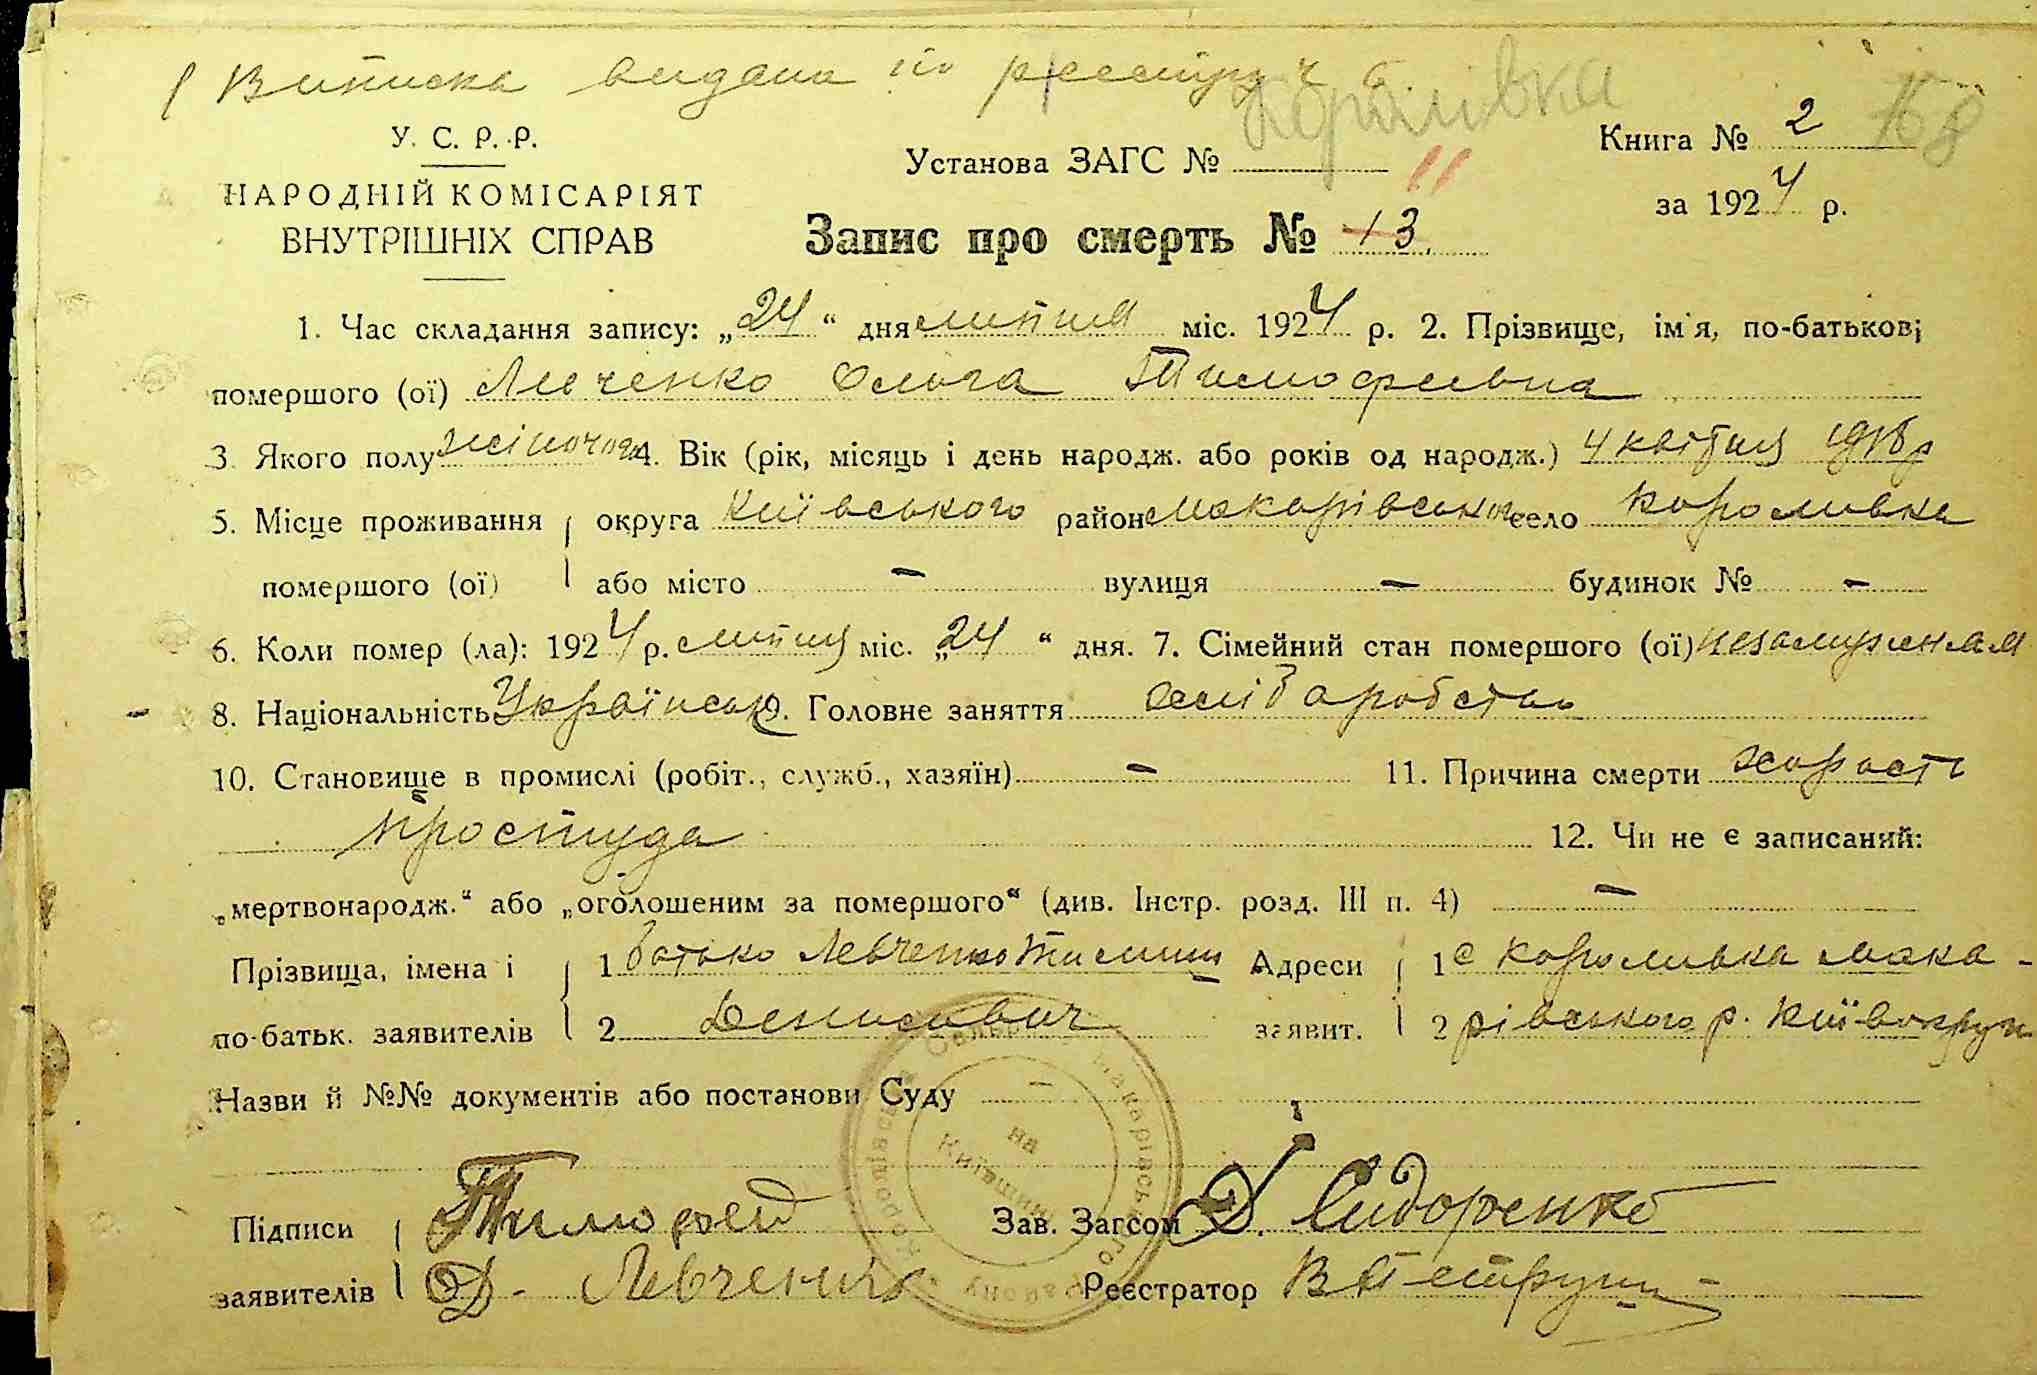 Виписка видана по реєстру ч 6.
Королівка
У. С. Р. Р.
НАРОДНІЙ КОМІСАРІЯТ
ВНУТРІШНІХ СПРАВ
Установа ЗАГС №
11
Запис про смерть № 13.
Книга № 2 168
за 1924 р.
1. Час складання запису: „24“ дня липня міс. 1924 р. 2. Прізвище, ім'я, по-батькові
помершого (ої) Левченко Ольга Тимофеівна
3. Якого полу жіночого 4. Вік (рік, місяць і день народж. або років од народж.) 4 квітня р
5. Місце проживання округа Київського район Макарівського село Королівка
помершого (ої) або місто – вулиця – будинок № –
6. Коли помер (ла): 1924 р. липня міс. „24“ дня. 7. Сімейний стан помершого (ої) незамужняя
8. Національність Українська 9. Головне заняття хліборобство
10. Становище в промислі (робіт., служб., хазяїн) – 11. Причина смерти хорость
простуда 12. Чи не є записаний:
„мертвонародж.“ або „оголошеним за помершого“ (див. Інстр. розд. III п. 4) –
Прізвища, імена і 1 батько Левченко Тимиш Адреси 1 с Королівка Мака-
по-батьк. заявителів 2 Денисович заявит. 2 рівського р. Київокруги
Назви й №№ документів або постанови Суду –
Підписи Тимофей Зав. Загсом Д. Сидоренко
заявителів Д. Левченко Реєстратор
Макарівського Району на Київщині